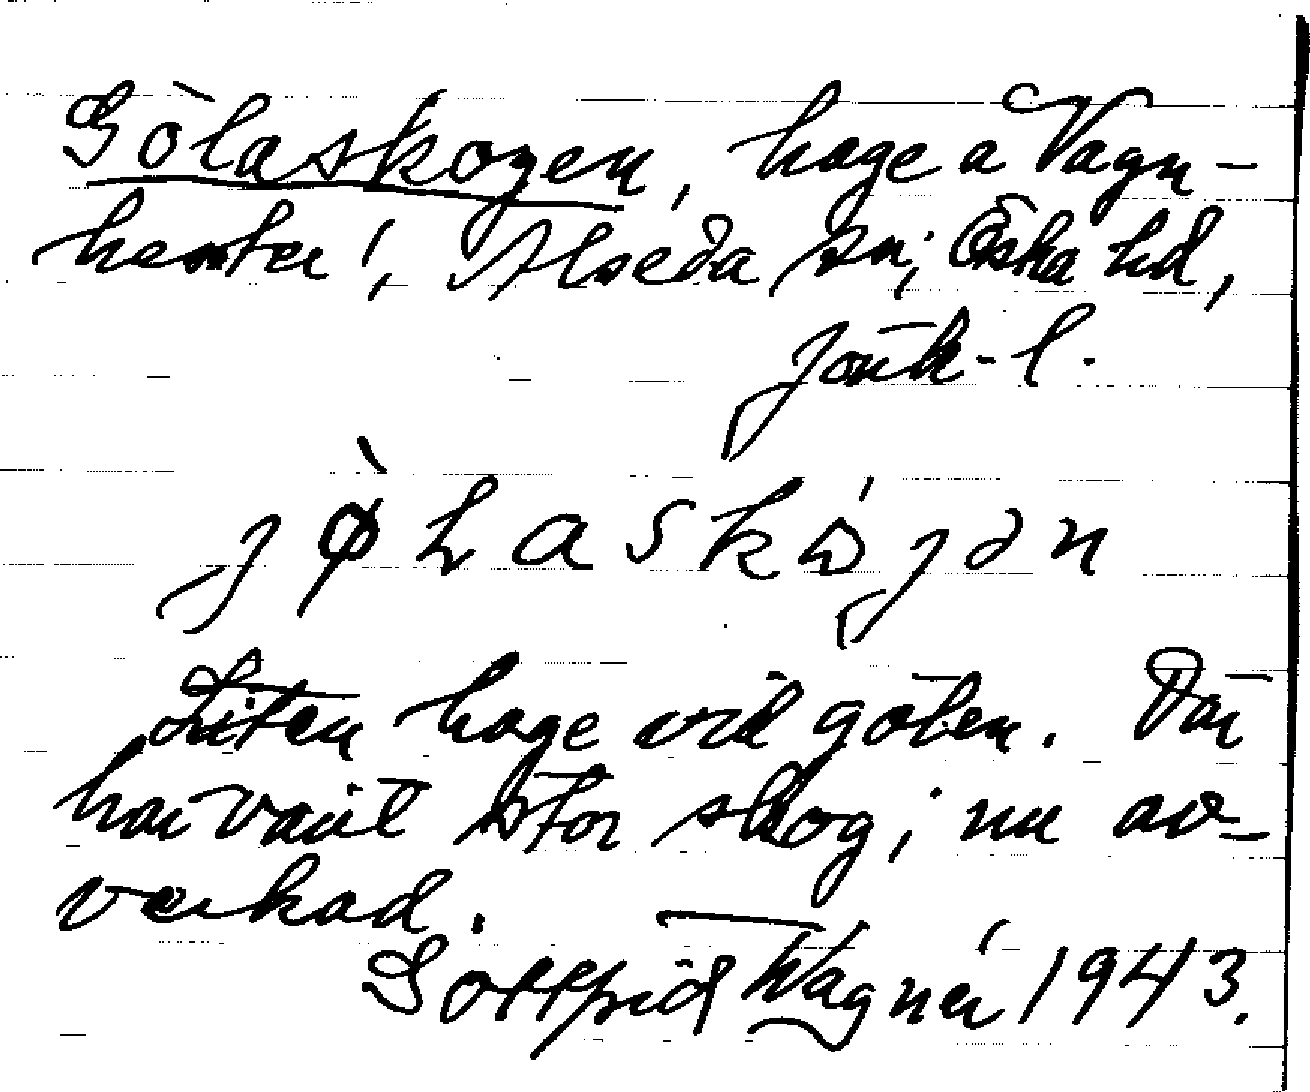 Gölaskogen, hage å Vagn-
hester, Alseda sn, Östra hd,
Jönk-l.
jø̀Laskójən
Liten hage vid gölen. Där
har varit stor skog, nu av-
verkad.
Gottfrid Wagnér 1943.